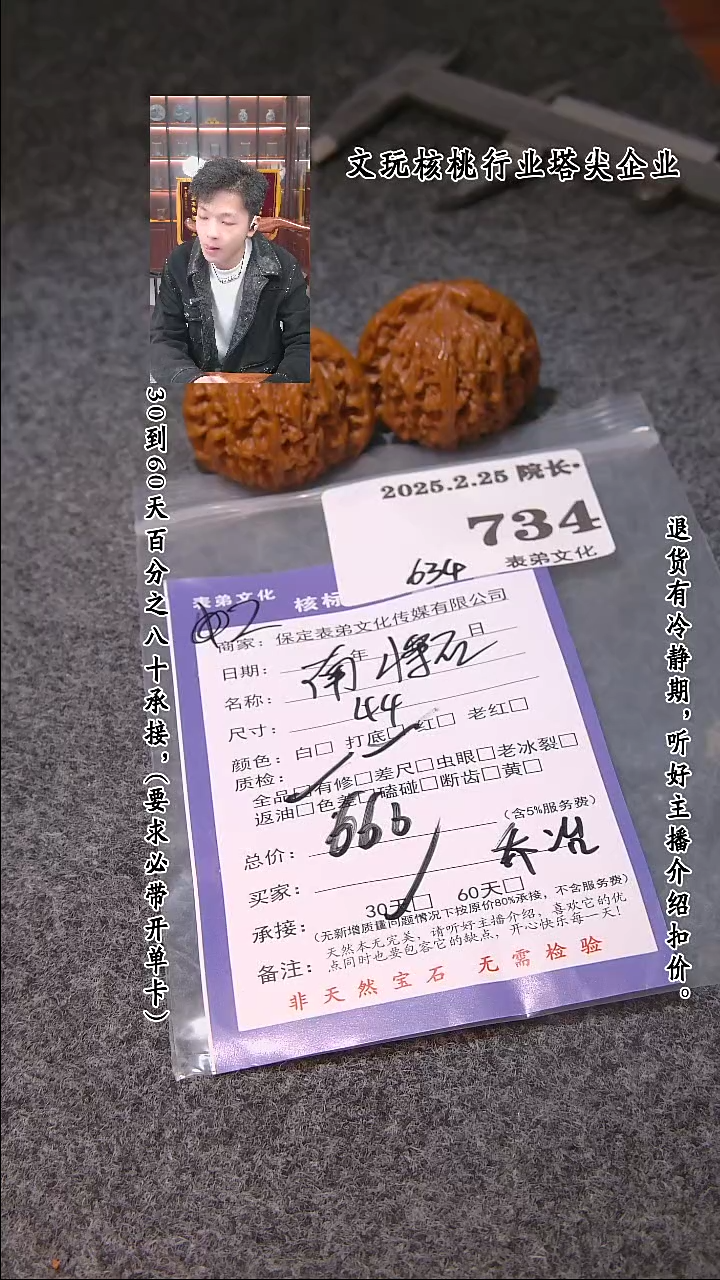 文玩核桃行业塔尖企业
30到60天百分之八十承接，(要求必带开单卡)
退货有冷静期，听好主播介绍扣价。
2025.2.25 院长
734
表弟文化
634
表弟文化 核标
商家：保定表弟文化传媒有限公司
日期： 年 日
名称：南将石
尺寸：44
颜色：白□ 打底□ 红□ 老红□
质检：
全品□有修□差尺□虫眼□老冰裂□
返油□色差□磕碰□断齿□黄□
总价：666 (含5%服务费)
买家：
承接：30天□ 60天□
(无新增质量问题情况下按原价80%承接，不含服务费)
备注：天然本无完美，请听好主播介绍，喜欢它的优
点同时也要包容它的缺点，开心快乐每一天！
非天然宝石 无需检验